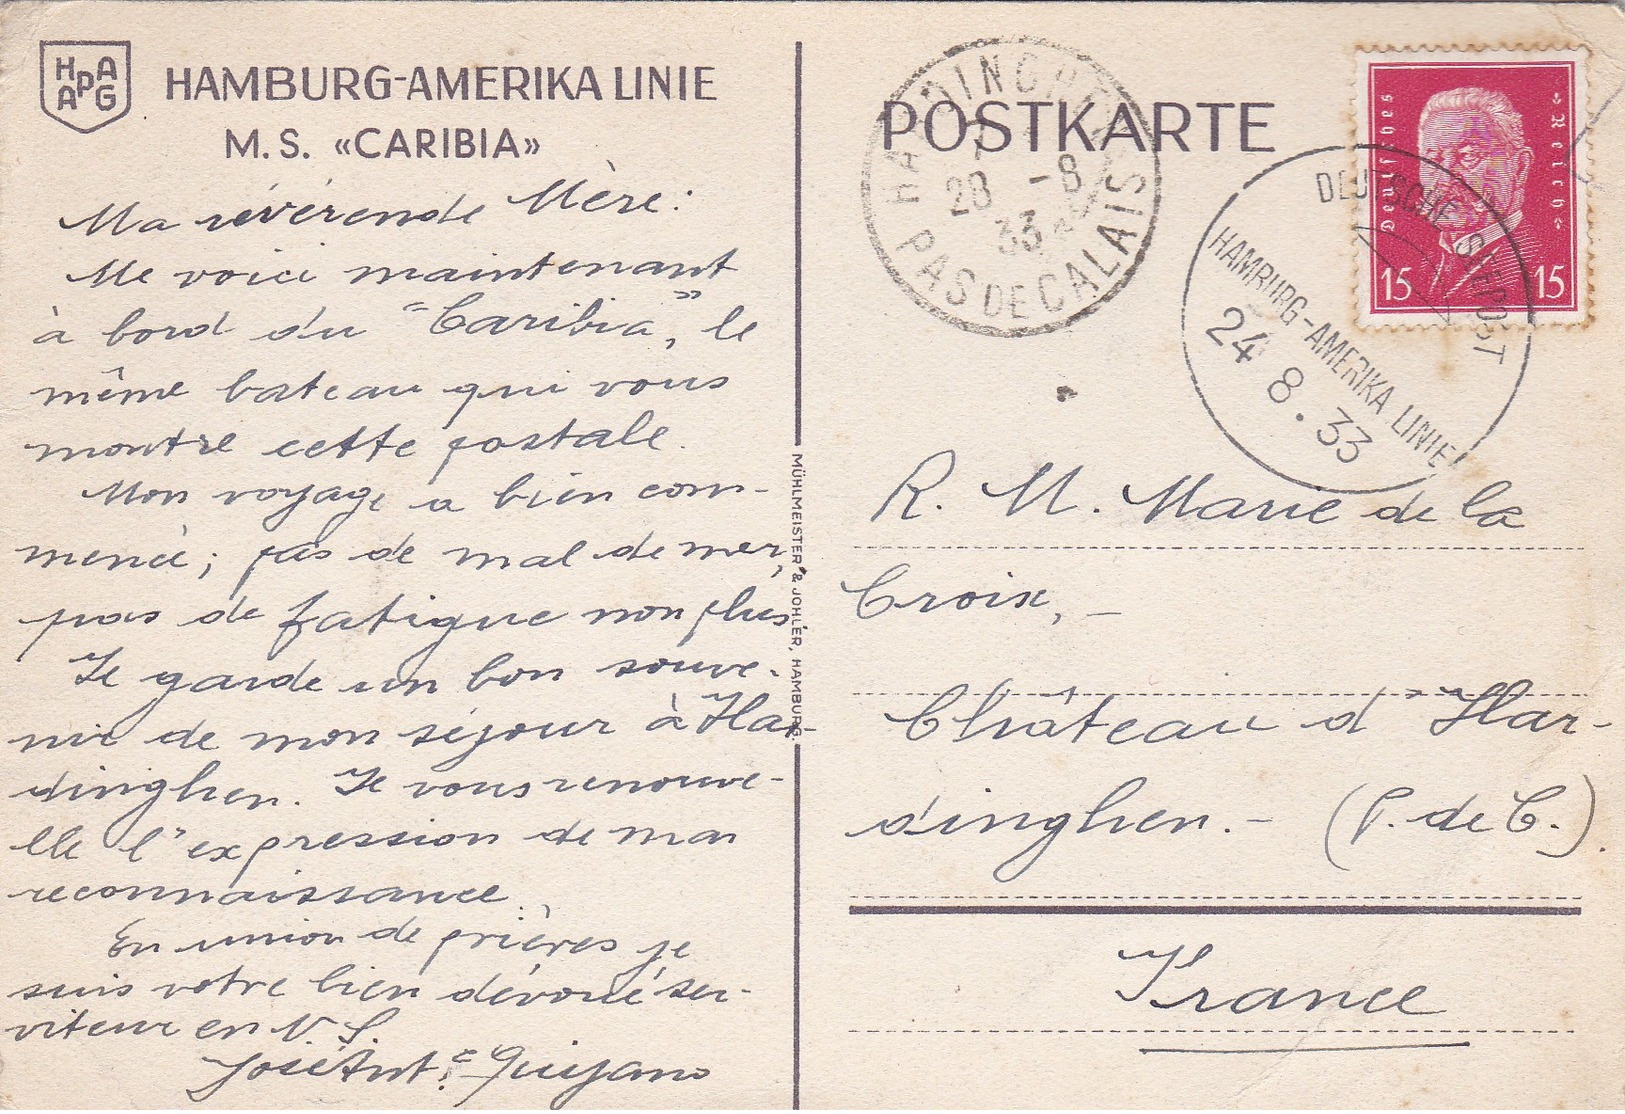 HAPAG
HAMBURG-AMERIKA LINIE
M.S. «CARIBIA»
Ma révérende Mère:
Me voici maintenant
à bord du "Caribia", le
même bateau qui vous
montre cette postale.
Mon voyage a bien com-
mencé; pas de mal de mer,
pas de fatigue non plus
Je garde un bon souve-
nir de mon séjour à Har-
dinghen. Je vous renouve-
lle l'expression de ma
reconnaissance.
En union de prières je
suis votre bien dévoué ser-
viteur en N. S.
José Ant.º Quijano
MÜHLMEISTER & JOHLER, HAMBURG.
POSTKARTE
HARDINGHEN
28 -8
33
PAS DE CALAIS
Deutsches Reich
15 15
DEUTSCHE SEEPOST
HAMBURG-AMERIKA LINIE
24 8.33
R. M. Marie de la
Croix, -
Château d'Har-
dinghen.- (P. de C.).
France